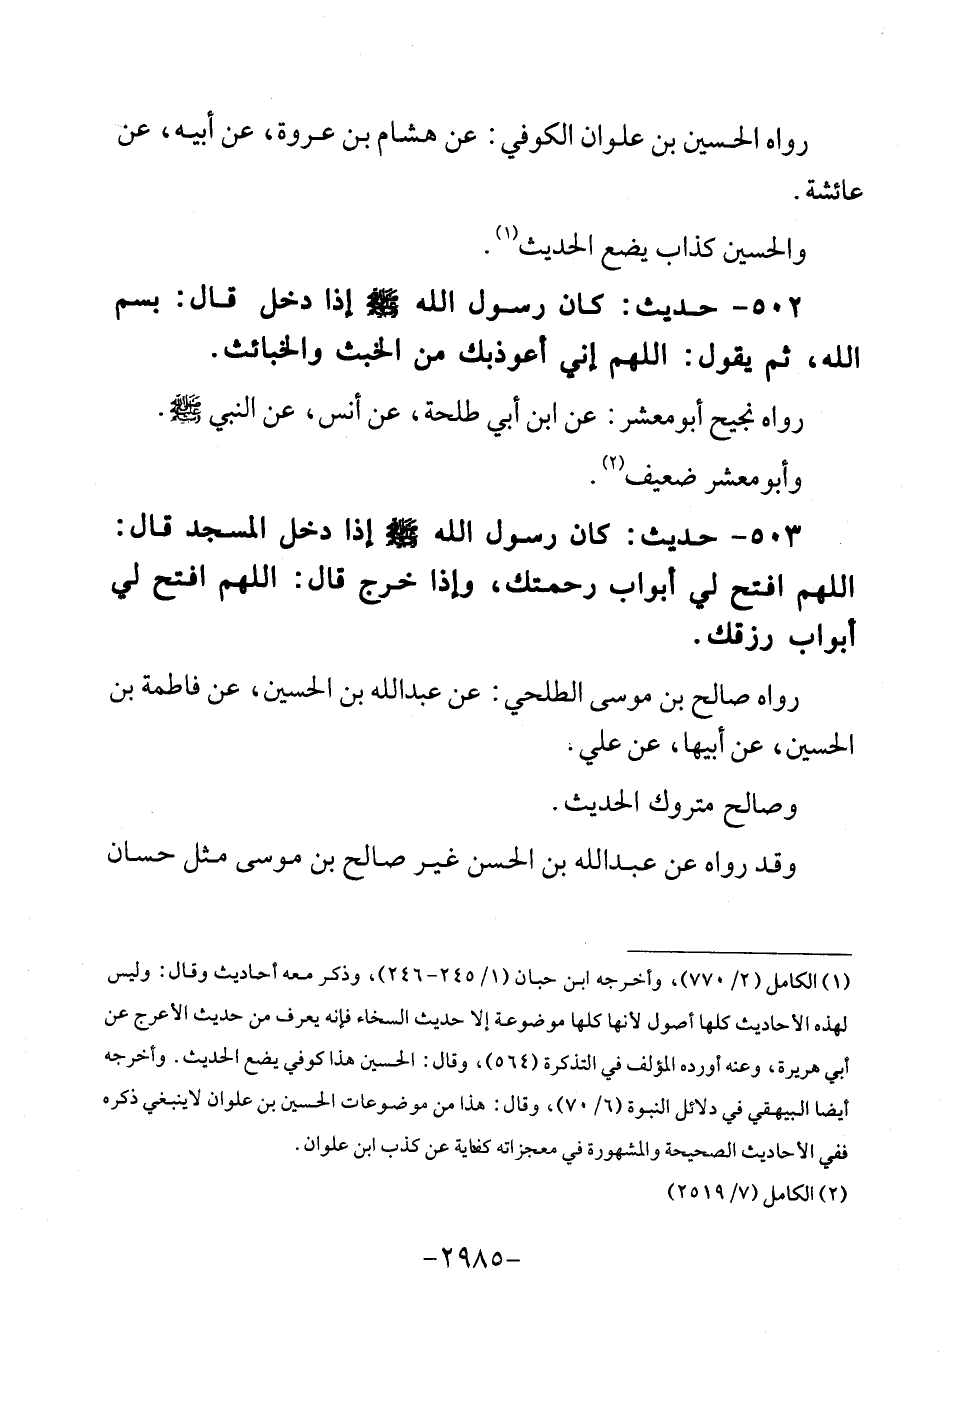 رواه الحسين بن علوان الكوفي: عن هشام بن عروة، عن أبيه، عن
عائشة.
والحسين كذاب يضع الحديث(١).
٥٠٢- حديث: كان رسول الله ﷺ إذا دخل قال: بسم
الله، ثم يقول: اللهم إني أعوذبك من الخبث والخبائث.
رواه نجيح أبومعشر: عن ابن أبي طلحة، عن أنس، عن النبي ﷺ.
وأبومعشر ضعيف(٢).
٥٠٣- حديث: كان رسول الله ﷺ إذا دخل المسجد قال:
اللهم افتح لي أبواب رحمتك، وإذا خرج قال: اللهم افتح لي
أبواب رزقك.
رواه صالح بن موسى الطلحي: عن عبدالله بن الحسين، عن فاطمة بن
الحسين، عن أبيها، عن علي.
وصالح متروك الحديث.
وقد رواه عن عبدالله بن الحسن غير صالح بن موسى مثل حسان
(١) الكامل (٢/ ٧٧٠)، وأخرجه ابن حبان (١/ ٢٤٥-٢٤٦)، وذكر معه أحاديث وقال: وليس
لهذه الأحاديث كلها أصول لأنها كلها موضوعة إلا حديث السخاء فإنه يعرف من حديث الأعرج عن
أبي هريرة، وعنه أورده المؤلف في التذكرة (٥٦٤)، وقال: الحسين هذا كوفي يضع الحديث. وأخرجه
أيضا البيهقي في دلائل النبوة (٦/ ٧٠)، وقال: هذا من موضوعات الحسين بن علوان لاينبغي ذكره
ففي الأحاديث الصحيحة والمشهورة في معجزاته كفاية عن كذب ابن علوان.
(٢) الكامل (٧/ ٢٥١٩)
-٢٩٨٥-